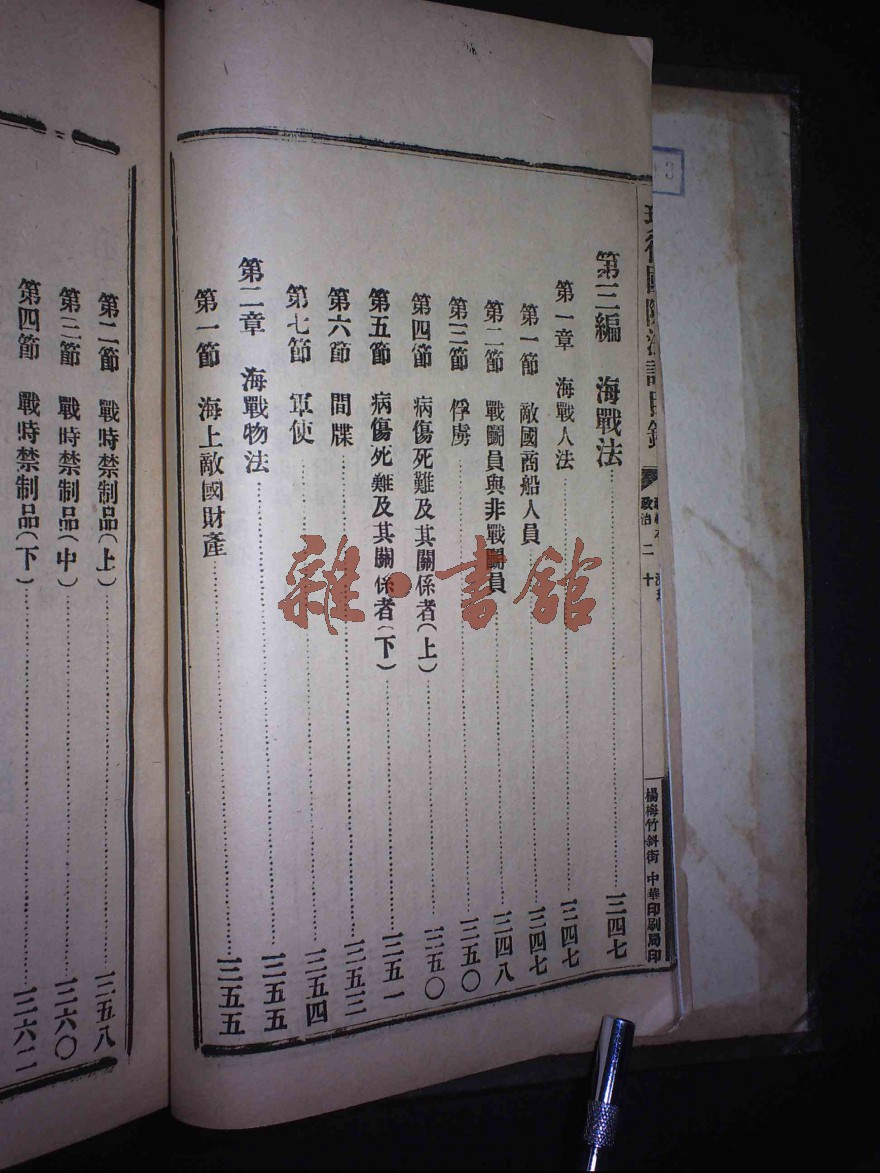 政治 二十
楊梅竹斜街 中華印刷局印
第三編 海戰法 三四七
第一章 海戰人法 三四七
第一節 敵國商船人員 三四七
第二節 戰鬭員與非戰鬭員 三四八
第三節 俘虜 三五〇
第四節 病傷死難及其關係者(上) 三五〇
第五節 病傷死難及其關係者(下) 三五一
第六節 間牒 三五三
第七節 軍使 三五四
第二章 海戰物法 三五五
第一節 海上敵國財產 三五五
第二節 戰時禁制品(上) 三五八
第三節 戰時禁制品(中) 三六〇
第四節 戰時禁制品(下) 三六二
雜·書館